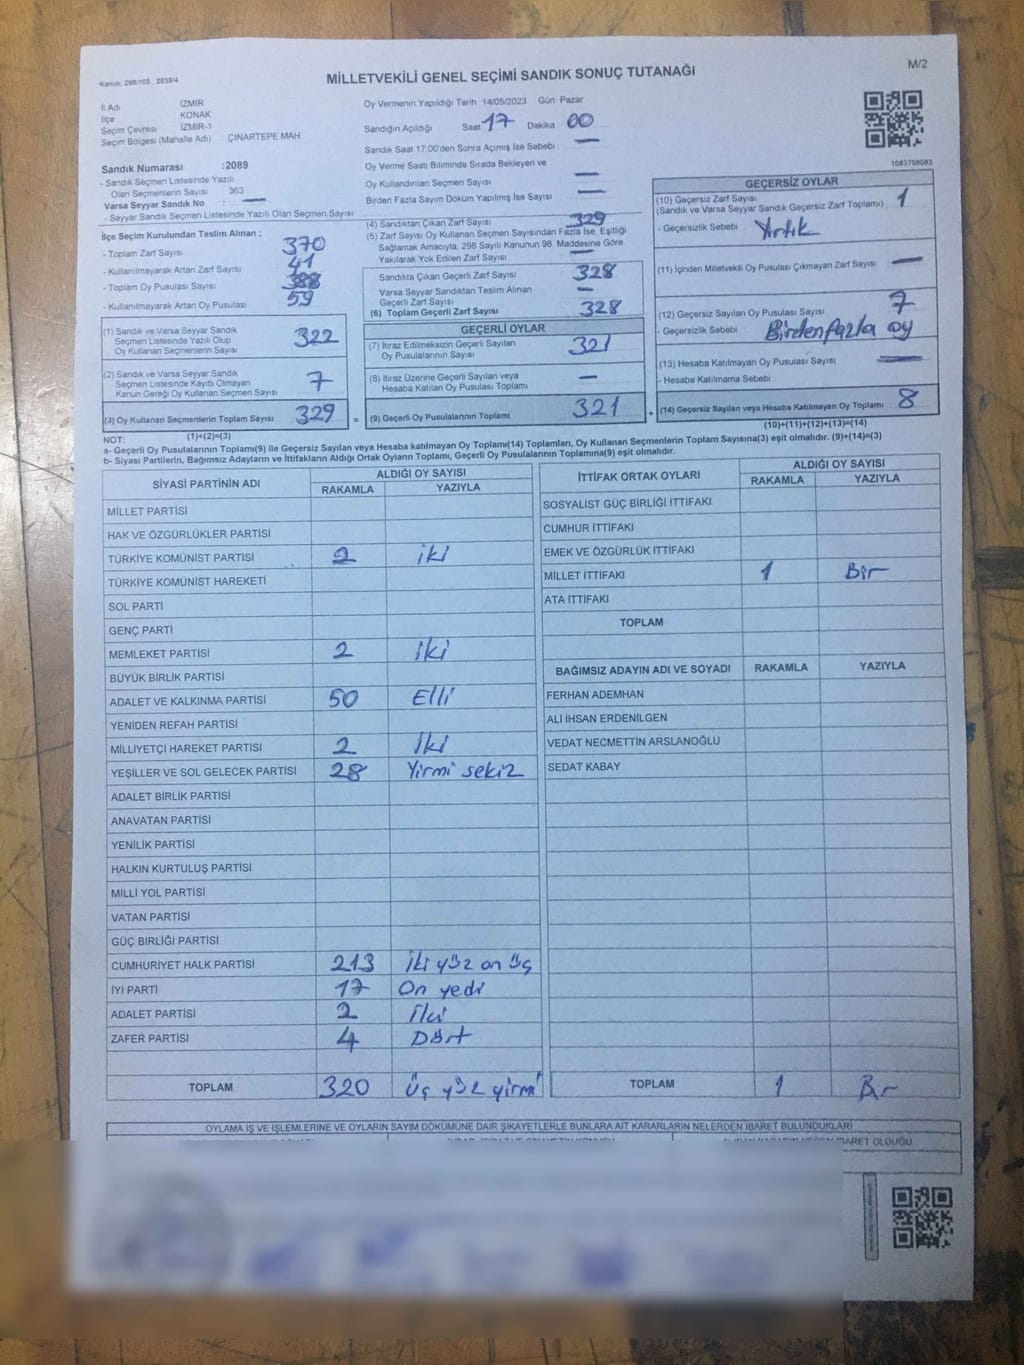 Kanun, 298/105 , 2839/4
M/2
MİLLETVEKİLİ GENEL SEÇİMİ SANDIK SONUÇ TUTANAĞI
İl Adı İZMİR
İlçe KONAK
Seçim Çevresi İZMİR-1
Seçim Bölgesi (Mahalle Adı) ÇINARTEPE MAH.
Sandık Numarası :2089
- Sandık Seçmen Listesinde Yazılı
Olan Seçmenlerin Sayısı 363
Varsa Seyyar Sandık No : —
- Seyyar Sandık Seçmen Listesinde Yazılı Olan Seçmen Sayısı
Oy Vermenin Yapıldığı Tarih 14/05/2023 Gün: Pazar
Sandığın Açıldığı Saat 17 Dakika 00
Sandık Saat 17:00'den Sonra Açılmış İse Sebebi : —
Oy Verme Saati Bitiminde Sırada Bekleyen ve
Oy Kullandırılan Seçmen Sayısı —
Birden Fazla Sayım Döküm Yapılmış İse Sayısı —
1083798083
İlçe Seçim Kurulundan Teslim Alınan ;
- Toplam Zarf Sayısı 370
- Kullanılmayarak Artan Zarf Sayısı 41
- Toplam Oy Pusulası Sayısı 388
- Kullanılmayarak Artan Oy Pusulası 59
(1) Sandık ve Varsa Seyyar Sandık
Seçmen Listesinde Yazılı Olup
Oy Kullanan Seçmenlerin Sayısı 322
(2) Sandık ve Varsa Seyyar Sandık
Seçmen Listesinde Kayıtlı Olmayan
Kanun Gereği Oy Kullanan Seçmen Sayısı 7
(3) Oy Kullanan Seçmenlerin Toplam Sayısı 329 =
(1)+(2)=(3)
(4) Sandıktan Çıkan Zarf Sayısı 329
(5) Zarf Sayısı Oy Kullanan Seçmen Sayısından Fazla İse, Eşitliği
Sağlamak Amacıyla, 298 Sayılı Kanunun 98. Maddesine Göre
Yakılarak Yok Edilen Zarf Sayısı —
Sandıkta Çıkan Geçerli Zarf Sayısı 328
Varsa Seyyar Sandıktan Teslim Alınan
Geçerli Zarf Sayısı —
(6) Toplam Geçerli Zarf Sayısı 328
GEÇERLİ OYLAR
(7) İtiraz Edilmeksizin Geçerli Sayılan
Oy Pusulalarının Sayısı 321
(8) İtiraz Üzerine Geçerli Sayılan veya
Hesaba Katılan Oy Pusulası Toplamı —
(9) Geçerli Oy Pusulalarının Toplamı 321 +
GEÇERSİZ OYLAR
(10) Geçersiz Zarf Sayısı
(Sandık ve Varsa Seyyar Sandık Geçersiz Zarf Toplamı) 1
- Geçersizlik Sebebi Yırtık
(11) İçinden Milletvekili Oy Pusulası Çıkmayan Zarf Sayısı —
(12) Geçersiz Sayılan Oy Pusulası Sayısı 7
- Geçersizlik Sebebi Birden fazla oy
(13) Hesaba Katılmayan Oy Pusulası Sayısı —
- Hesaba Katılmama Sebebi
(14) Geçersiz Sayılan veya Hesaba Katılmayan Oy Toplamı 8
(10)+(11)+(12)+(13)=(14)
NOT:
a- Geçerli Oy Pusulalarının Toplamı(9) ile Geçersiz Sayılan veya Hesaba katılmayan Oy Toplamı(14) Toplamları, Oy Kullanan Seçmenlerin Toplam Sayısına(3) eşit olmalıdır. (9)+(14)=(3)
b- Siyasi Partilerin, Bağımsız Adayların ve İttifakların Aldığı Ortak Oyların Toplamı, Geçerli Oy Pusulalarının Toplamına(9) eşit olmalıdır.
SİYASİ PARTİNİN ADI ALDIĞI OY SAYISI
RAKAMLA YAZIYLA
MİLLET PARTİSİ
HAK VE ÖZGÜRLÜKLER PARTİSİ
TÜRKİYE KOMÜNİST PARTİSİ 2 iki
TÜRKİYE KOMÜNİST HAREKETİ
SOL PARTİ
GENÇ PARTİ
MEMLEKET PARTİSİ 2 iki
BÜYÜK BİRLİK PARTİSİ
ADALET VE KALKINMA PARTİSİ 50 Elli
YENİDEN REFAH PARTİSİ
MİLLİYETÇİ HAREKET PARTİSİ 2 iki
YEŞİLLER VE SOL GELECEK PARTİSİ 28 Yirmi sekiz
ADALET BİRLİK PARTİSİ
ANAVATAN PARTİSİ
YENİLİK PARTİSİ
HALKIN KURTULUŞ PARTİSİ
MİLLİ YOL PARTİSİ
VATAN PARTİSİ
GÜÇ BİRLİĞİ PARTİSİ
CUMHURİYET HALK PARTİSİ 213 iki yüz on üç
İYİ PARTİ 17 On yedi
ADALET PARTİSİ 2 iki
ZAFER PARTİSİ 4 Dört
TOPLAM 320 üç yüz yirmi
İTTİFAK ORTAK OYLARI ALDIĞI OY SAYISI
RAKAMLA YAZIYLA
SOSYALİST GÜÇ BİRLİĞİ İTTİFAKI
CUMHUR İTTİFAKI
EMEK VE ÖZGÜRLÜK İTTİFAKI
MİLLET İTTİFAKI 1 Bir
ATA İTTİFAKI
TOPLAM
BAĞIMSIZ ADAYIN ADI VE SOYADI RAKAMLA YAZIYLA
FERHAN ADEMHAN
ALİ İHSAN ERDENİLGEN
VEDAT NECMETTİN ARSLANOĞLU
SEDAT KABAY
TOPLAM 1 Bir
OYLAMA İŞ VE İŞLEMLERİNE VE OYLARIN SAYIM DÖKÜMÜNE DAİR ŞİKAYETLERLE BUNLARA AİT KARARLARIN NELERDEN İBARET BULUNDUKLARI